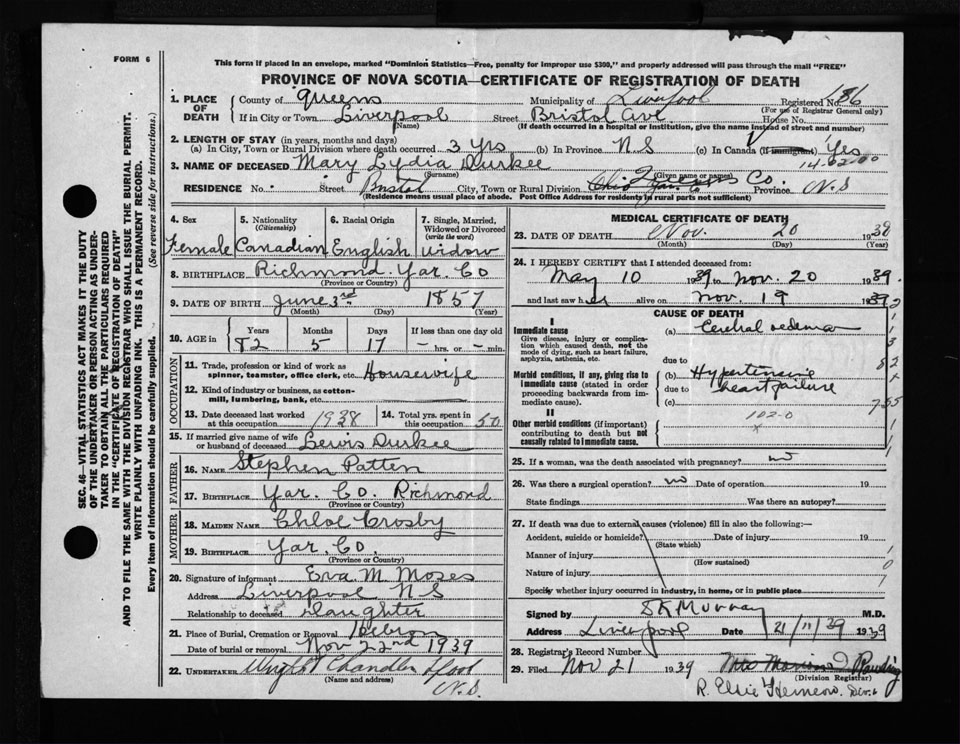 FORM 6
This form if placed in an envelope, marked "Dominion Statistics—Free, penalty for improper use $300," and properly addressed will pass through the mail "FREE"
PROVINCE OF NOVA SCOTIA—CERTIFICATE OF REGISTRATION OF DEATH
SEC. 46—VITAL STATISTICS ACT MAKES IT THE DUTY
OF THE UNDERTAKER OR PERSON ACTING AS UNDER-
TAKER TO OBTAIN ALL THE PARTICULARS REQUIRED
IN THE "CERTIFICATE OF REGISTRATION OF DEATH"
AND TO FILE THE SAME WITH THE DIVISION REGISTRAR WHO SHALL ISSUE THE BURIAL PERMIT.
WRITE PLAINLY WITH UNFADING INK. THIS IS A PERMANENT RECORD.
Every item of Information should be carefully supplied. (See reverse side for instructions.)
1. PLACE OF DEATH County of Queens Municipality of Liverpool Registered No. 186
(For use of Registrar General only)
If in City or Town Liverpool Street Bristol Ave House No.
(Name) (If death occurred in a hospital or institution, give the name instead of street and number)
2. LENGTH OF STAY (in years, months and days)
(a) In City, Town or Rural Division where death occurred 3 yrs (b) In Province N S (c) In Canada (if immigrant) Yes
14-02-00
3. NAME OF DECEASED Mary Lydia Durkee
(Surname) (Given name or names)
RESIDENCE No. Street Bristol City, Town or Rural Division Ohio Yar. Co Queens Co. Province N.S
(Residence means usual place of abode. Post Office Address for residents in rural parts not sufficient)
4. Sex Female
5. Nationality (Citizenship) Canadian
6. Racial Origin English
7. Single, Married, Widowed or Divorced (write the word) widow
8. BIRTHPLACE Richmond Yar. Co
(Province or Country)
9. DATE OF BIRTH June 3rd 1857
(Month) (Day) (Year)
10. AGE in Years 82 Months 5 Days 17 If less than one day old — hrs. or — min.
OCCUPATION
11. Trade, profession or kind of work as spinner, teamster, office clerk, etc. Housewife
12. Kind of industry or business, as cotton-mill, lumbering, bank, etc.
13. Date deceased last worked at this occupation 1938
14. Total yrs. spent in this occupation 50
15. If married give name of wife or husband of deceased Lewis Durkee
FATHER
16. NAME Stephen Patten
17. BIRTHPLACE Yar. Co. Richmond
(Province or Country)
MOTHER
18. MAIDEN NAME Chloe Crosby
19. BIRTHPLACE Yar. Co.
(Province or Country)
20. Signature of informant Eva M. Moses
Address Liverpool N S
Relationship to deceased daughter
21. Place of Burial, Cremation or Removal Hebron
Date of burial or removal Nov 22nd 1939
22. UNDERTAKER Wright Chandler Lpool N.S.
(Name and address)
MEDICAL CERTIFICATE OF DEATH
23. DATE OF DEATH Nov. 20 1939
(Month) (Day) (Year)
24. I HEREBY CERTIFY that I attended deceased from:
May 10 1939 to Nov. 20 1939
and last saw her alive on Nov. 19 1939
CAUSE OF DEATH
I
Immediate cause
Give disease, injury or complication which caused death, not the mode of dying, such as heart failure, asphyxia, asthenia, etc.
(a) Cerebral oedema
due to
Morbid conditions, if any, giving rise to immediate cause (stated in order proceeding backwards from immediate cause)
(b) Hypertensive
due to heart failure
(c)
II
Other morbid conditions (if important) contributing to death but not causally related to immediate cause.
102-0
25. If a woman, was the death associated with pregnancy? no
26. Was there a surgical operation? no Date of operation 19
State findings Was there an autopsy?
27. If death was due to external causes (violence) fill in also the following:—
Accident, suicide or homicide? Date of injury 19
(State which)
Manner of injury
(How sustained)
Nature of injury
Specify whether injury occurred in industry, in home, or in public place
Signed by S R Murray M.D.
Address Liverpool Date 21/11/39 1939
28. Registrar's Record Number
29. Filed Nov 21 1939
(Division Registrar)